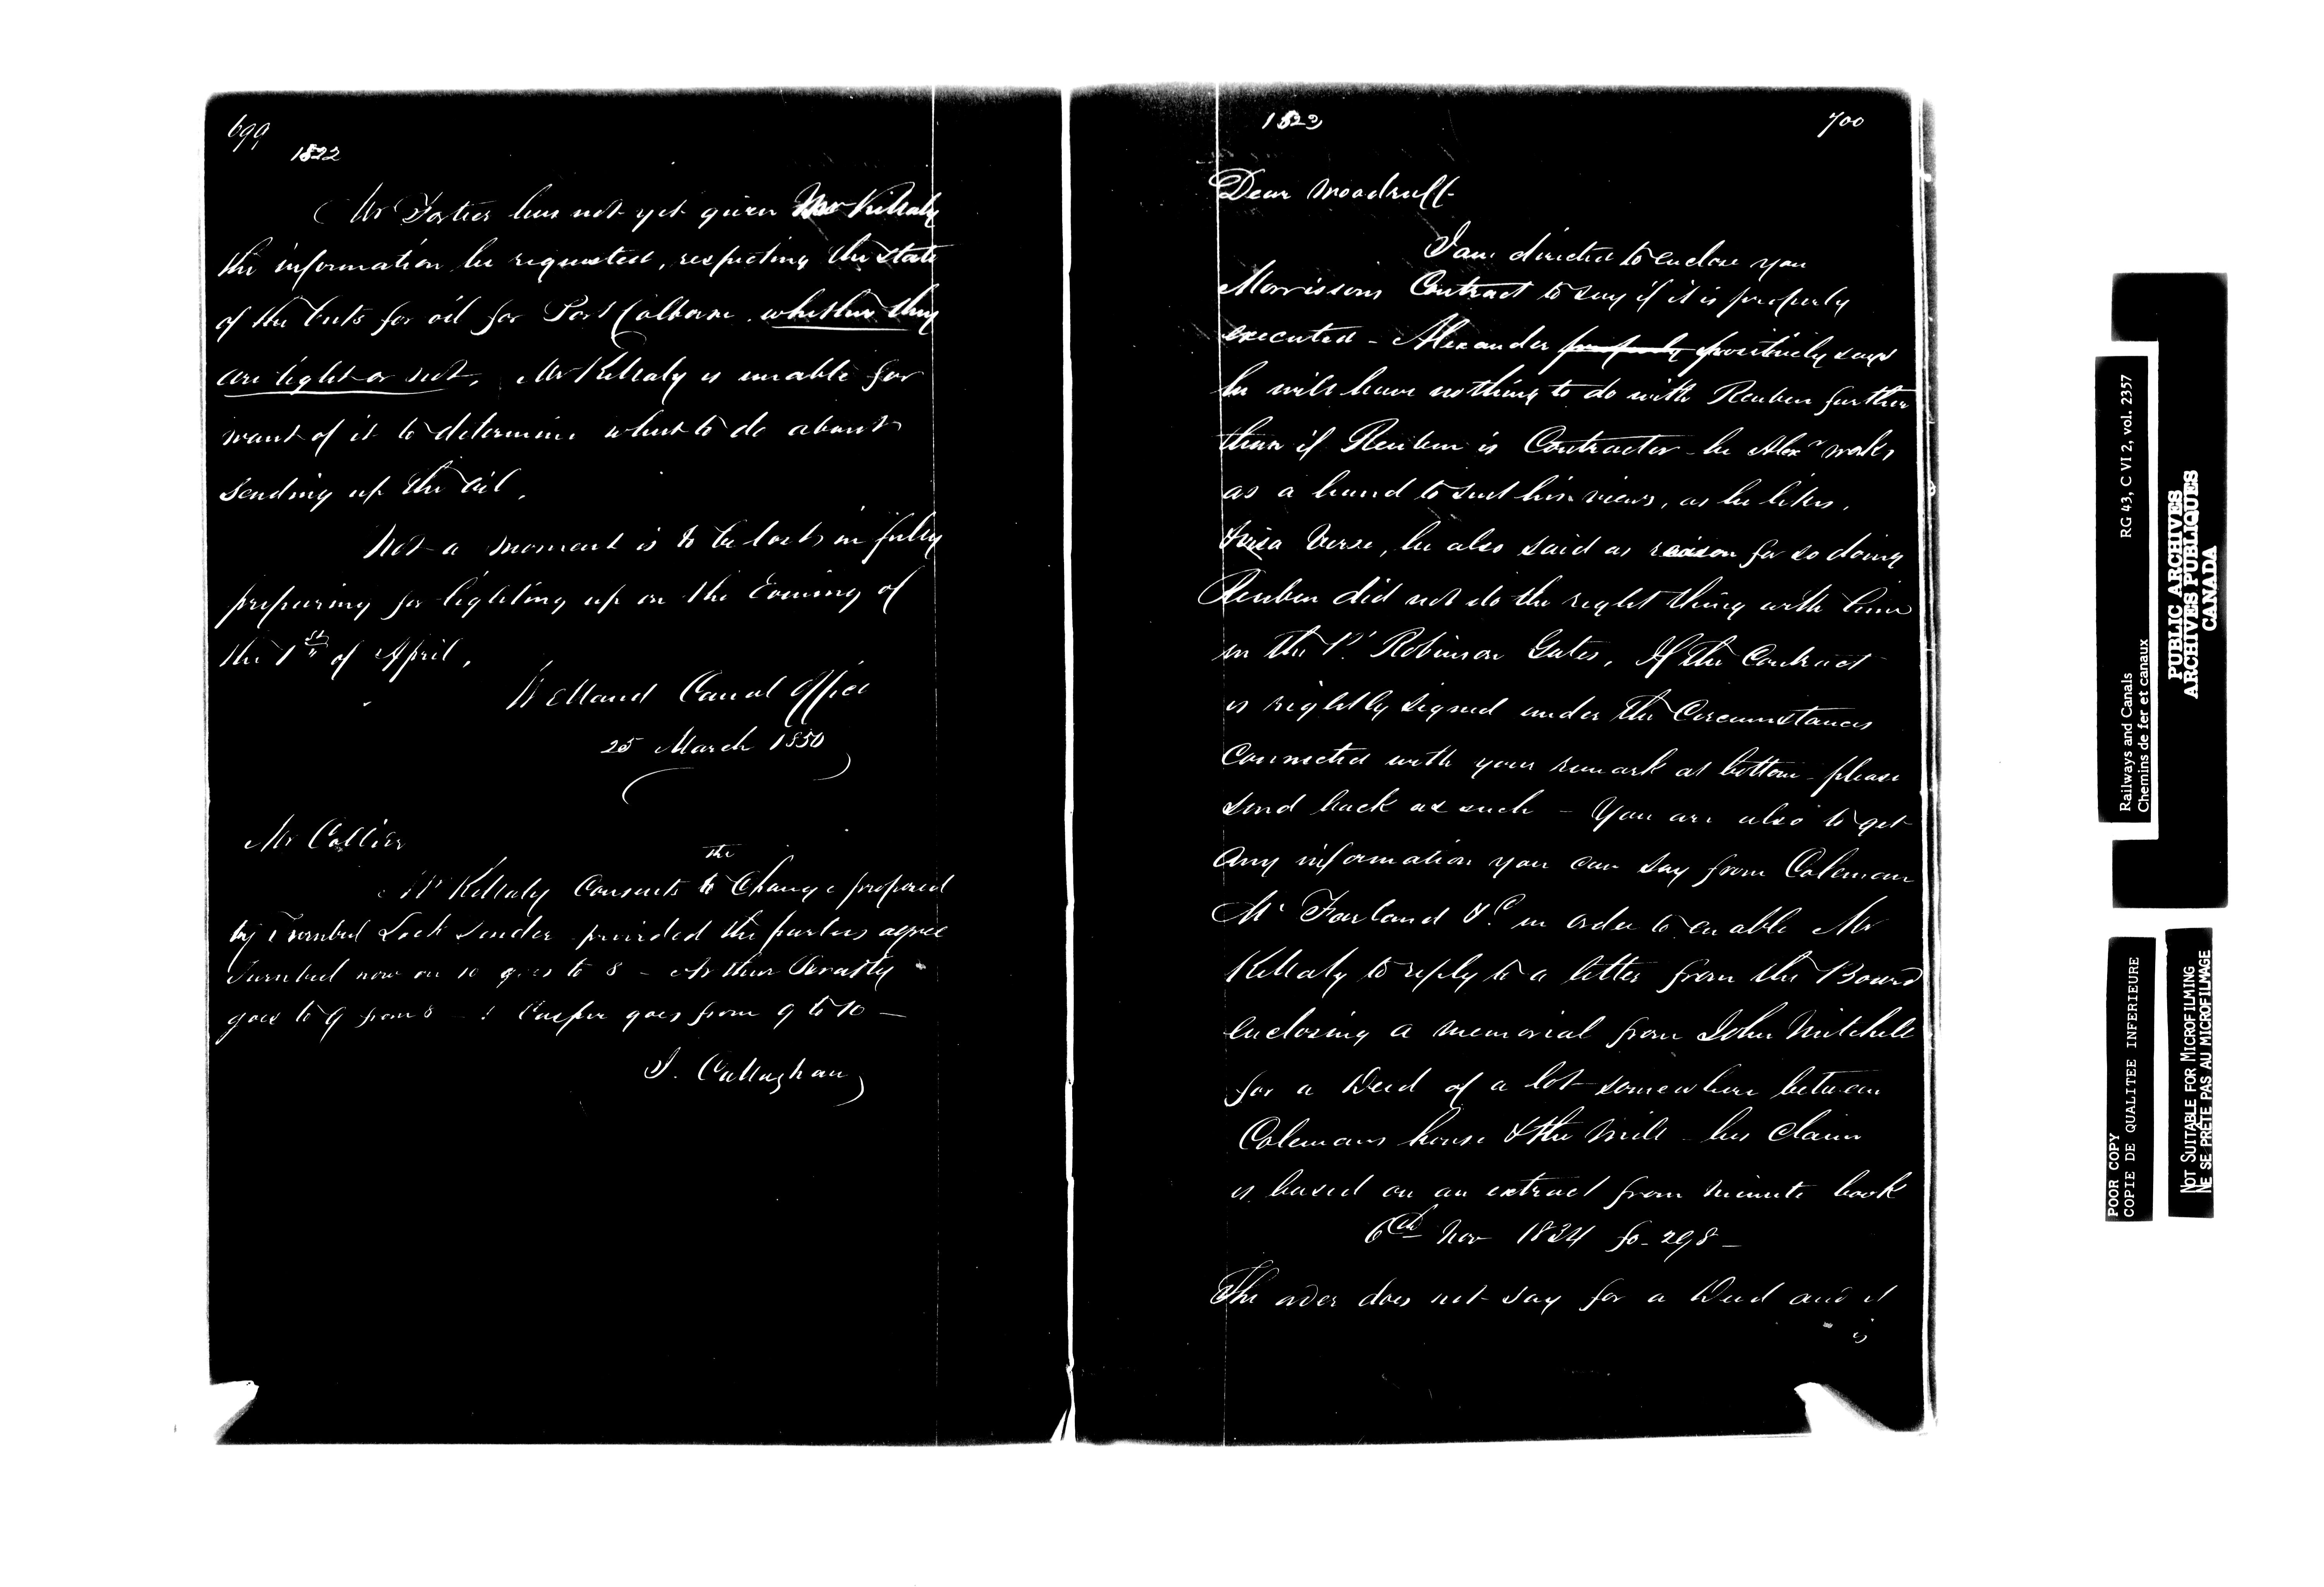 699
1822
Mr Fortier has not yet given Mr Killaly
the information he requested, respecting the state
of the Cuts for oil for Port Colborne, whether they
are tight or not, Mr Killaly is unable for
want of it to determine what to do about
sending up the oil.
Not a moment is to be lost, in fully
preparing for lighting up on the Evening of
the 1st of April.
Welland Canal Office
25 March 1850
Mr Collier
Mr Killaly Consents to the Change proposed
by Turnbul Lock Tender provided the parties agree
Turnbul now on 10 goes to 8 - Arthur
goes to 9 from 8 - & Casper goes from 9 to 10 -
J. Callaghan
1823
700
Dear Woodruff
I am directed to enclose you
Morrisons Contract to say if it is properly
executed - Alexander properly positively says
he will have nothing to do with Reuben further
than if Reuben is Contractor he Alexr works
as a hand to suit his views, as he likes,
& visa Verse, he also said as reason for so doing
Reuben did not do the right thing with him
in the Pt Robinson Gates, If the Contract
is rightly signed under the Circumstances
Connected with your remark at bottom - please
send back as such - You are also to get
any information you can say from Coleman
Mc Farland &c. in order to enable Mr
Killaly to reply to a letter from the Board
enclosing a memorial from John Mitchell
for a Deed of a lot somewhere between
Colemans house & the Mill - his Claim
is based on an extract from minute book
6th Nov 1834 fo- 298 -
The order does not say for a Deed and it
is
Railways and Canals RG 43, C VI 2, vol. 2357
Chemins de fer et canaux
PUBLIC ARCHIVES
ARCHIVES PUBLIQUES
CANADA
POOR COPY
COPIE DE QUALITEE INFERIEURE
NOT SUITABLE FOR MICROFILMING
NE SE PRÊTE PAS AU MICROFILMAGE